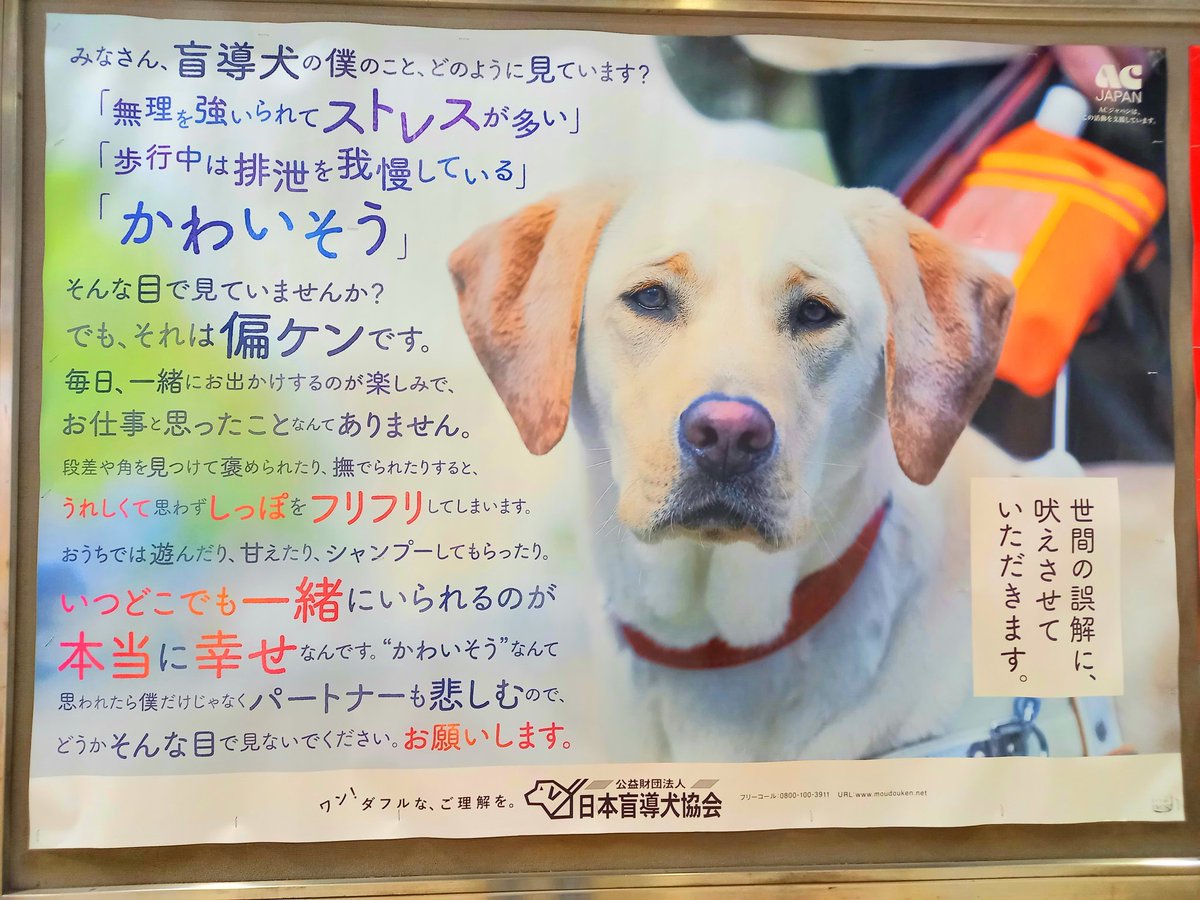 みなさん、盲導犬の僕のこと、どのように見ています?
「無理を強いられてストレスが多い」
「歩行中は排泄を我慢している」
「かわいそう」
そんな目で見ていませんか?
でも、それは偏ケンです。
毎日、一緒にお出かけするのが楽しみで、
お仕事と思ったことなんてありません。
段差や角を見つけて褒められたり、撫でられたりすると、
うれしくて思わずしっぽをフリフリしてしまいます。
おうちでは遊んだり、甘えたり、シャンプーしてもらったり。
いつどこでも一緒にいられるのが
本当に幸せなんです。“かわいそう”なんて
思われたら僕だけじゃなくパートナーも悲しむので、
どうかそんな目で見ないでください。お願いします。
AC
JAPAN
ACジャパンは、
この活動を支援しています。
世間の誤解に、
吠えさせて
いただきます。
ワン!ダフルな、ご理解を。
公益財団法人
日本盲導犬協会
フリーコール:0800-100-3911 URL:www.moudouken.net